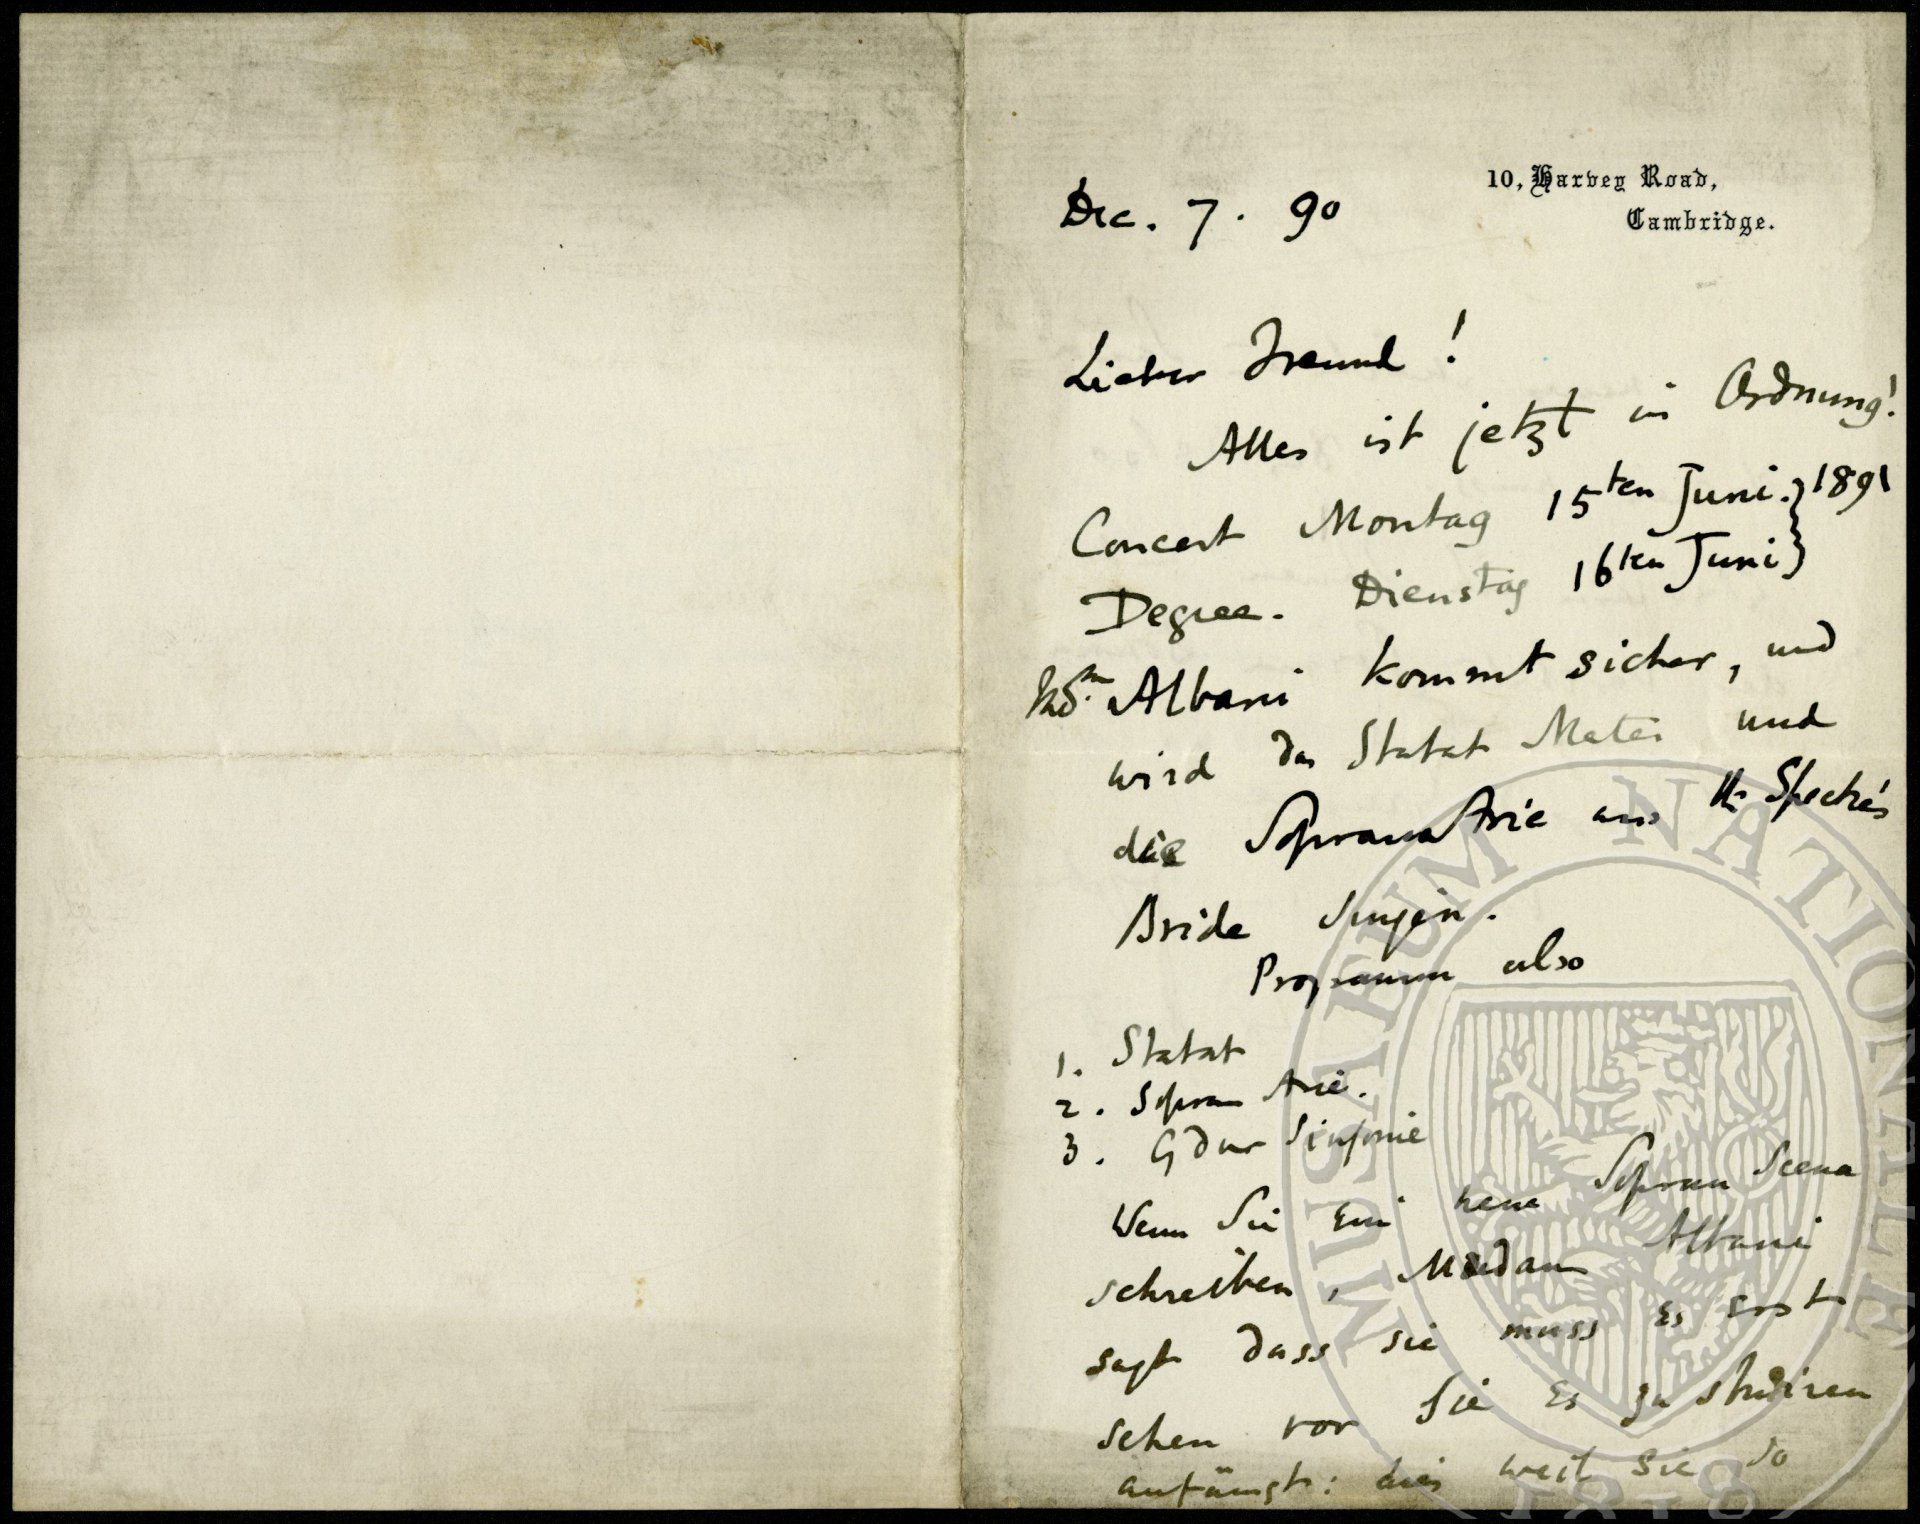 10, Harvey Road,
Cambridge.
Dec. 7. 90
Lieber Freund!
Alles ist jetzt in Ordnung!
Concert Montag 15ten Juni. } 1891
Degree. Dienstag 16ten Juni }
Md.m Albani kommt sicher, und
wird das Stabat Mater und
die Sopran Arie aus the Spectre's
Bride singen.
Programm also
1. Stabat
2. Sopran Arie.
3. G dur Sinfonie
Wenn Sie ein neue Sopran Scena
schreiben, Madam Albani
sagt dass sie muss es erst
sehen vor Sie es zu studiren
anfängt: dies weil Sie so
MUSAEUM NATIONALE
1818